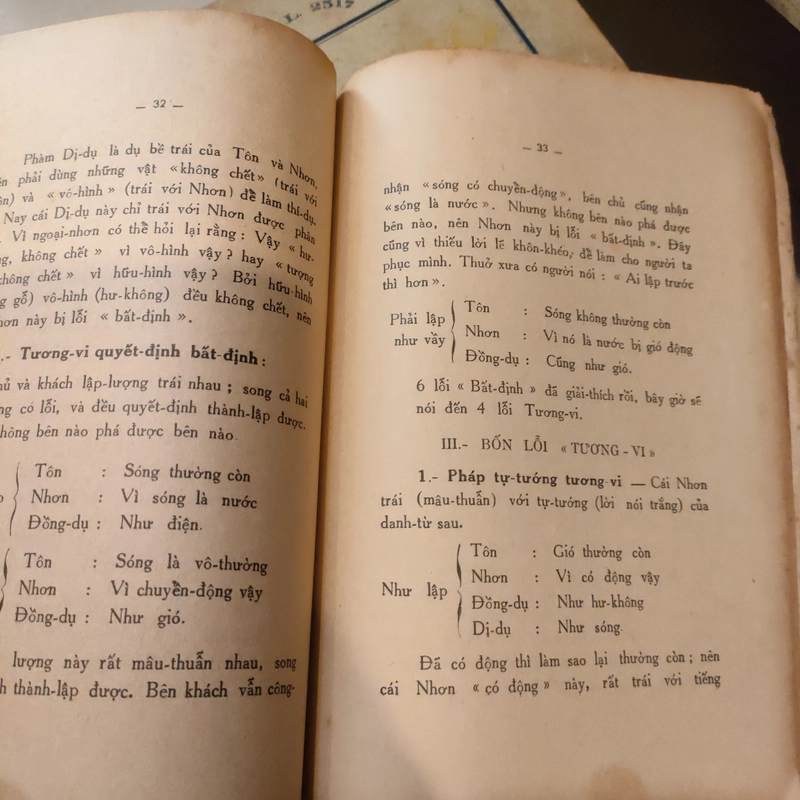 L. 2517
— 32 —
Phàm Dị-dụ là dụ bề trái của Tôn và Nhơn,
phải dùng những vật «không chết» (trái với
và «vô-hình» (trái với Nhơn) để làm thí-dụ.
Nay cái Dị-dụ này chỉ trái với Nhơn được phân
Vì ngoại-nhơn có thể hỏi lại rằng : Vậy «hư-
không chết» vì vô-hình vậy ? hay «tượng
không chết» vì hữu-hình vậy ? Bởi hữu-hình
gỗ) vô-hình (hư-không) đều không chết, nên
này bị lỗi « bất-định ».
.- Tương-vi quyết-định bất-định :
và khách lập-lượng trái nhau ; song cả hai
có lỗi, và đều quyết-định thành-lập được.
không bên nào phá được bên nào.
Tôn : Sóng thường còn
Nhơn : Vì sóng là nước
Đồng-dụ : Như điện.
Tôn : Sóng là vô-thường
Nhơn : Vì chuyển-động vậy
Đồng-dụ : Như gió.
lượng này rất mâu-thuẫn nhau, song
thành-lập được. Bên khách vẫn công-
— 33 —
nhận «sóng có chuyển-động», bên chủ cũng nhận
«sóng là nước». Nhưng không bên nào phá được
bên nào, nên Nhơn này bị lỗi « bất-định ». Đây
cũng vì thiếu lời lẽ khôn-khéo, để làm cho người ta
phục mình. Thuở xưa có người nói : « Ai lập trước
thì hơn ».
Phải lập như vầy
Tôn : Sóng không thường còn
Nhơn : Vì nó là nước bị gió động
Đồng-dụ : Cũng như gió.
6 lỗi « Bất-định » đã giải-thích rồi, bây giờ sẽ
nói đến 4 lỗi Tương-vi.
III.- BỐN LỖI «TƯƠNG-VI»
1.- Pháp tự-tướng tương-vi — Cái Nhơn
trái (mâu-thuẫn) với tự-tướng (lời nói trắng) của
danh-từ sau.
Như lập
Tôn : Gió thường còn
Nhơn : Vì có động vậy
Đồng-dụ : Như hư-không
Dị-dụ : Như sóng.
Đã có động thì làm sao lại thường còn ; nên
cái Nhơn « có động » này, rất trái với tiếng